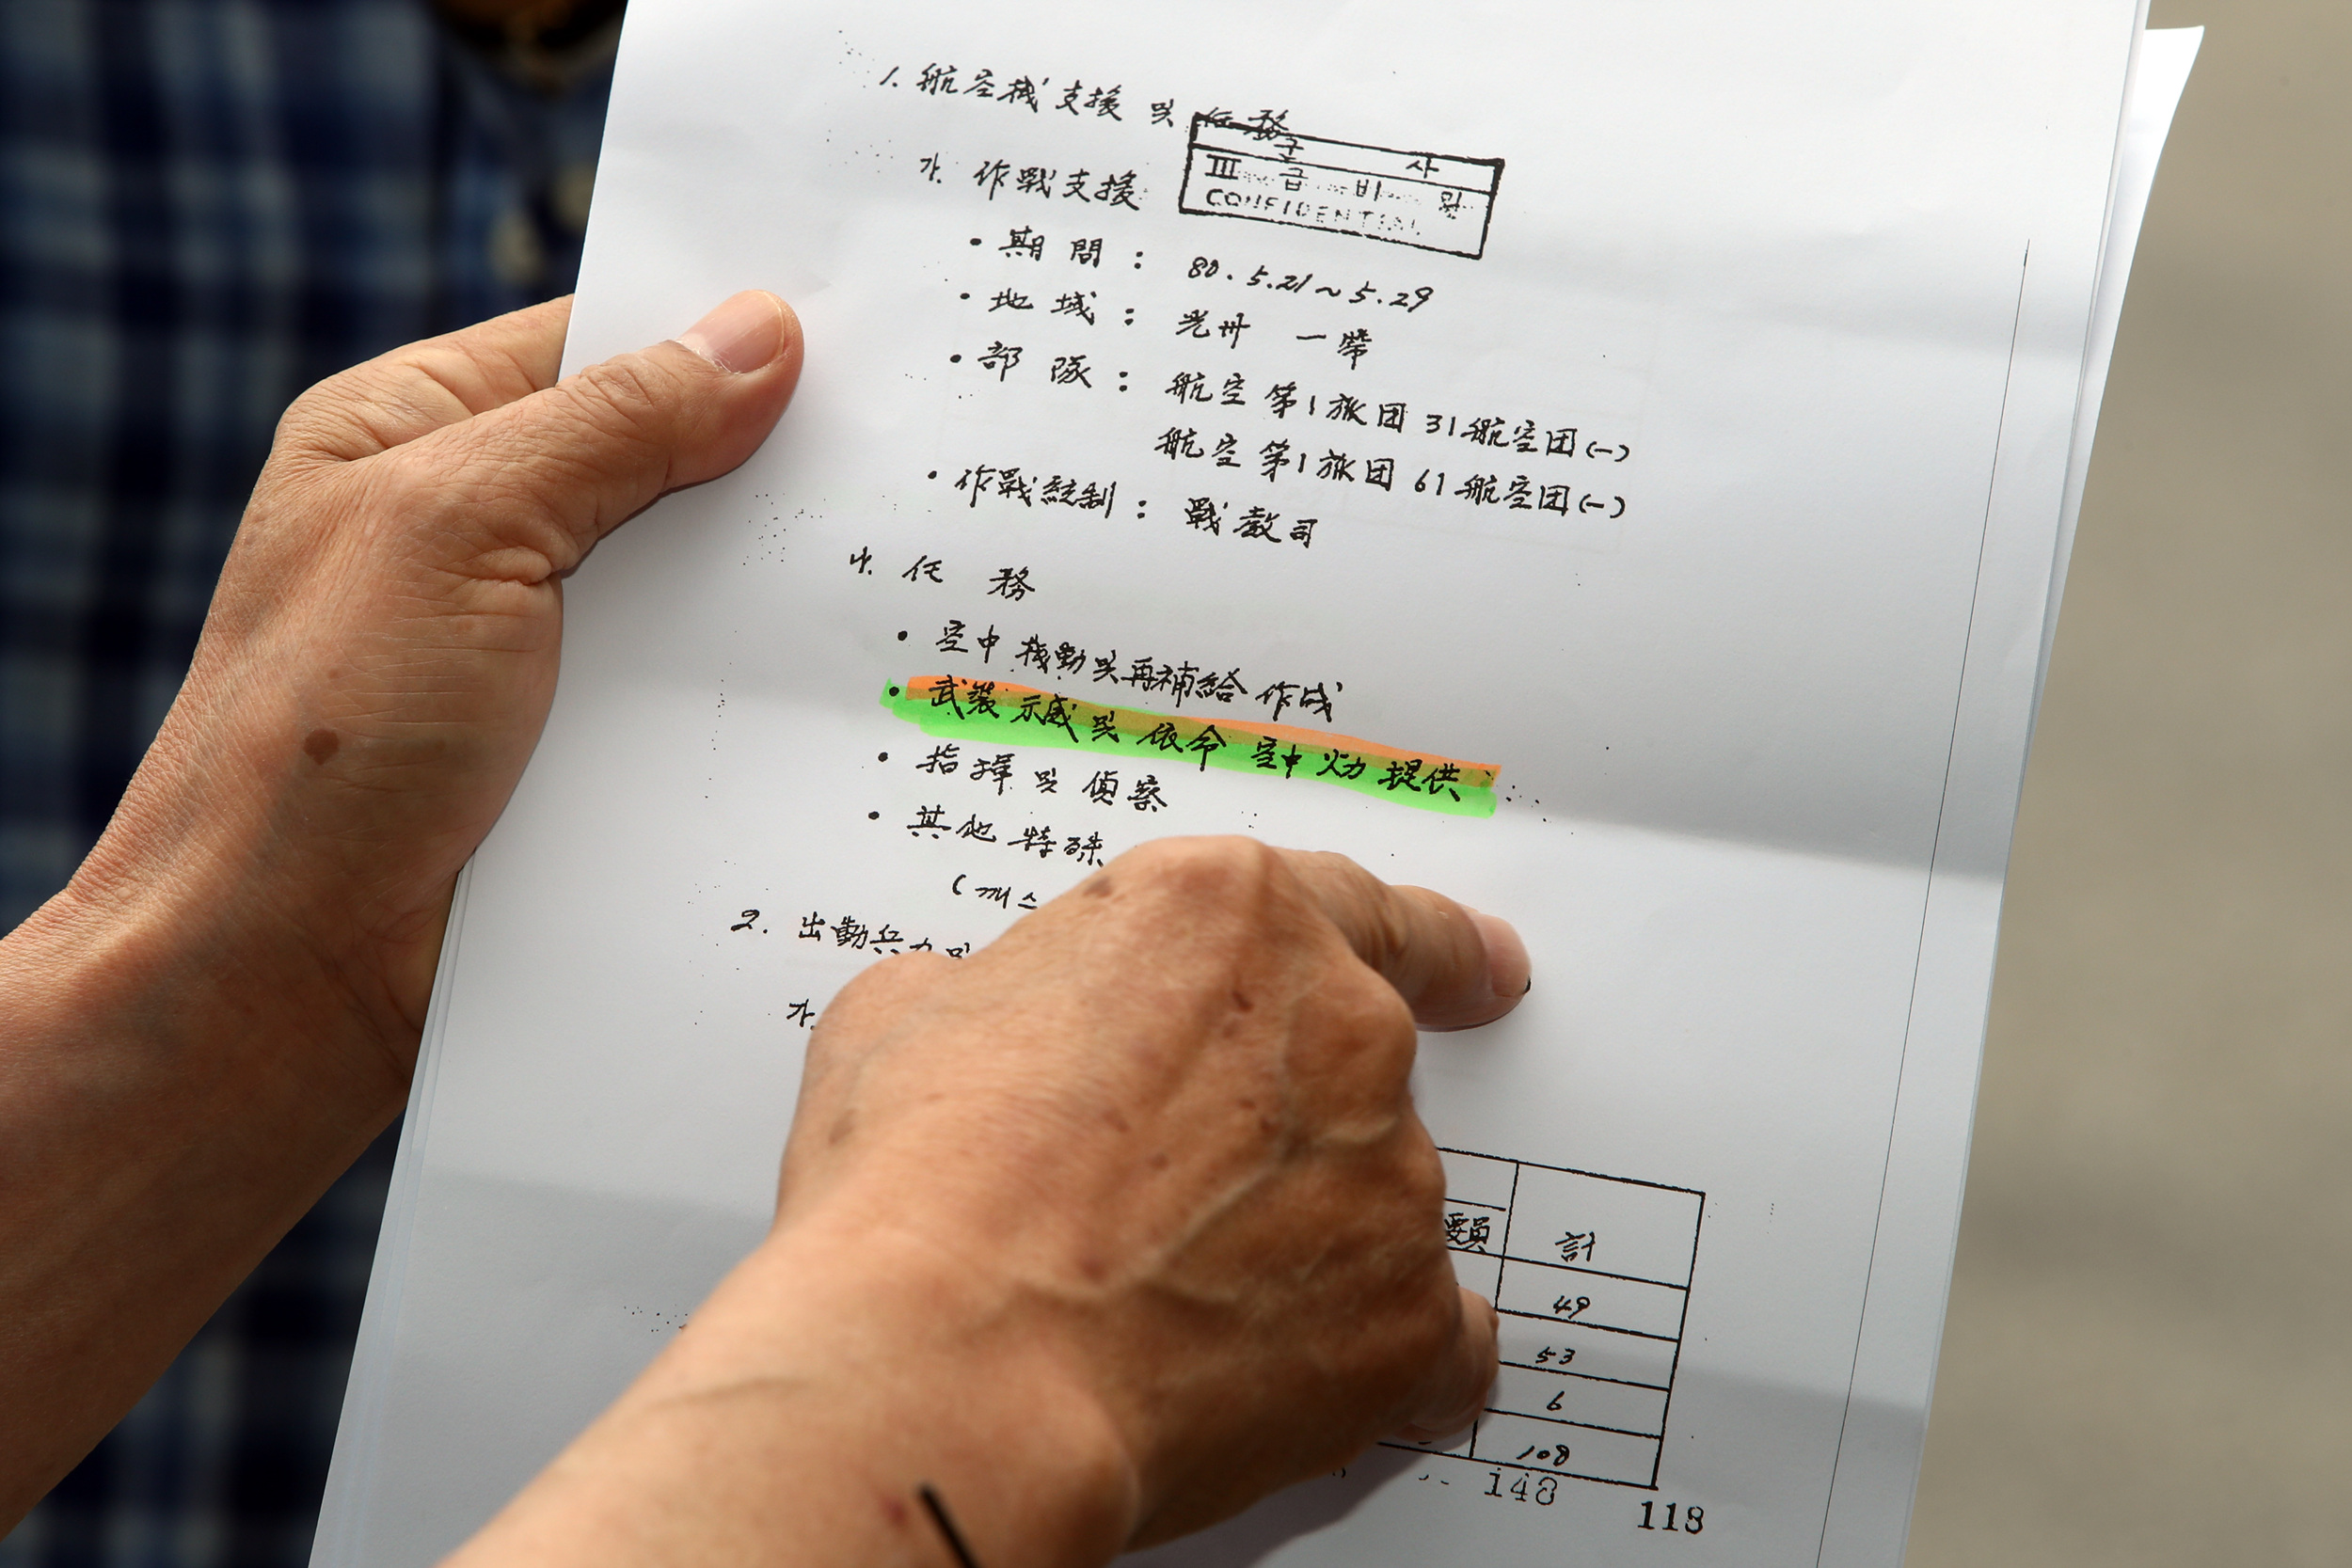 1. 航空機 支援 및 任務
군 사
III 급 비 밀
CONFIDENTIAL
가. 作戰支援
• 期 間 : 80. 5.21 ~ 5.29
• 地 域 : 光州 一帶
• 部 隊 : 航空 第1旅団 31航空団(-)
航空 第1旅団 61航空団(-)
• 作戰統制 : 戰敎司
나. 任 務
• 空中 機動 및 再補給 作戰
• 武裝 示威 및 依命 空中 火力 提供
• 指揮 및 偵察
• 其他 特殊
2. 出動兵力 및
가.
計
49
53
6
108
148
118